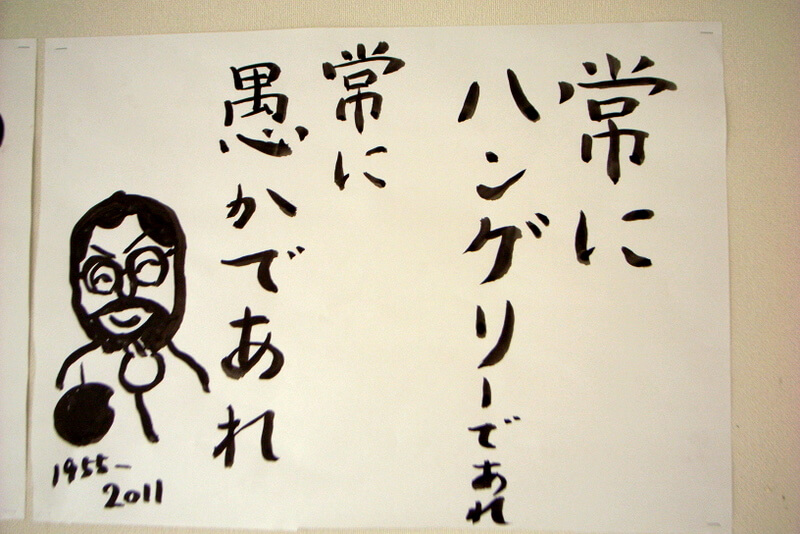 常に
ハングリーであれ
常に
愚かであれ
1955-
2011